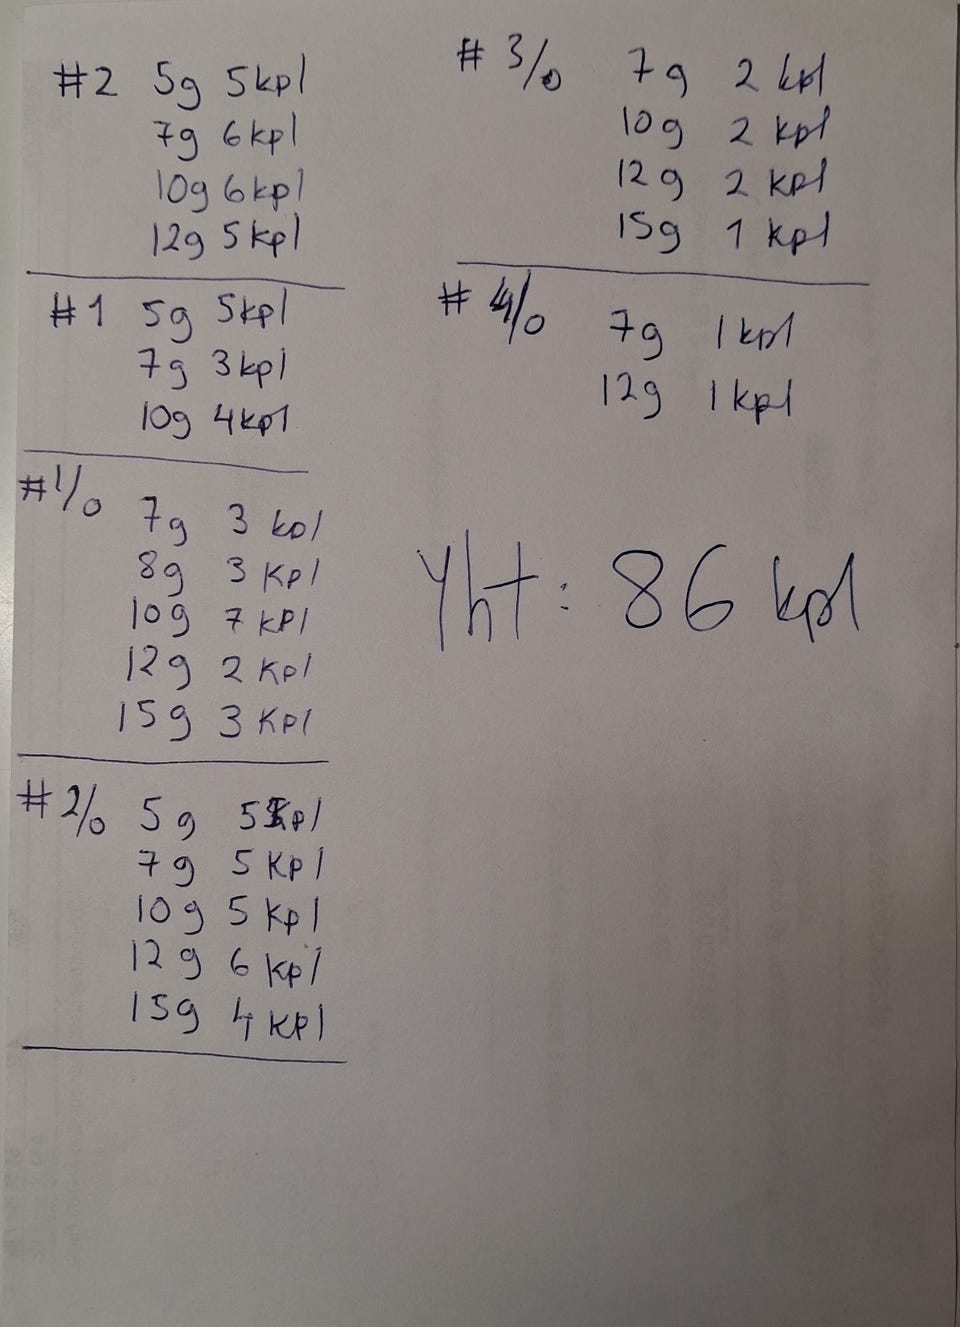 #2 5g 5kpl
7g 6kpl
10g 6kpl
12g 5kpl
#1 5g 5kpl
7g 3kpl
10g 4kpl
#1/0 7g 3 kpl
8g 3 kpl
10g 7 kpl
12g 2 kpl
15g 3 kpl
#2/0 5g 5 kpl
7g 5 kpl
10g 5 kpl
12g 6 kpl
15g 4 kpl
#3/0 7g 2 kpl
10g 2 kpl
12g 2 kpl
15g 1 kpl
#4/0 7g 1kpl
12g 1kpl
Yht: 86 kpl